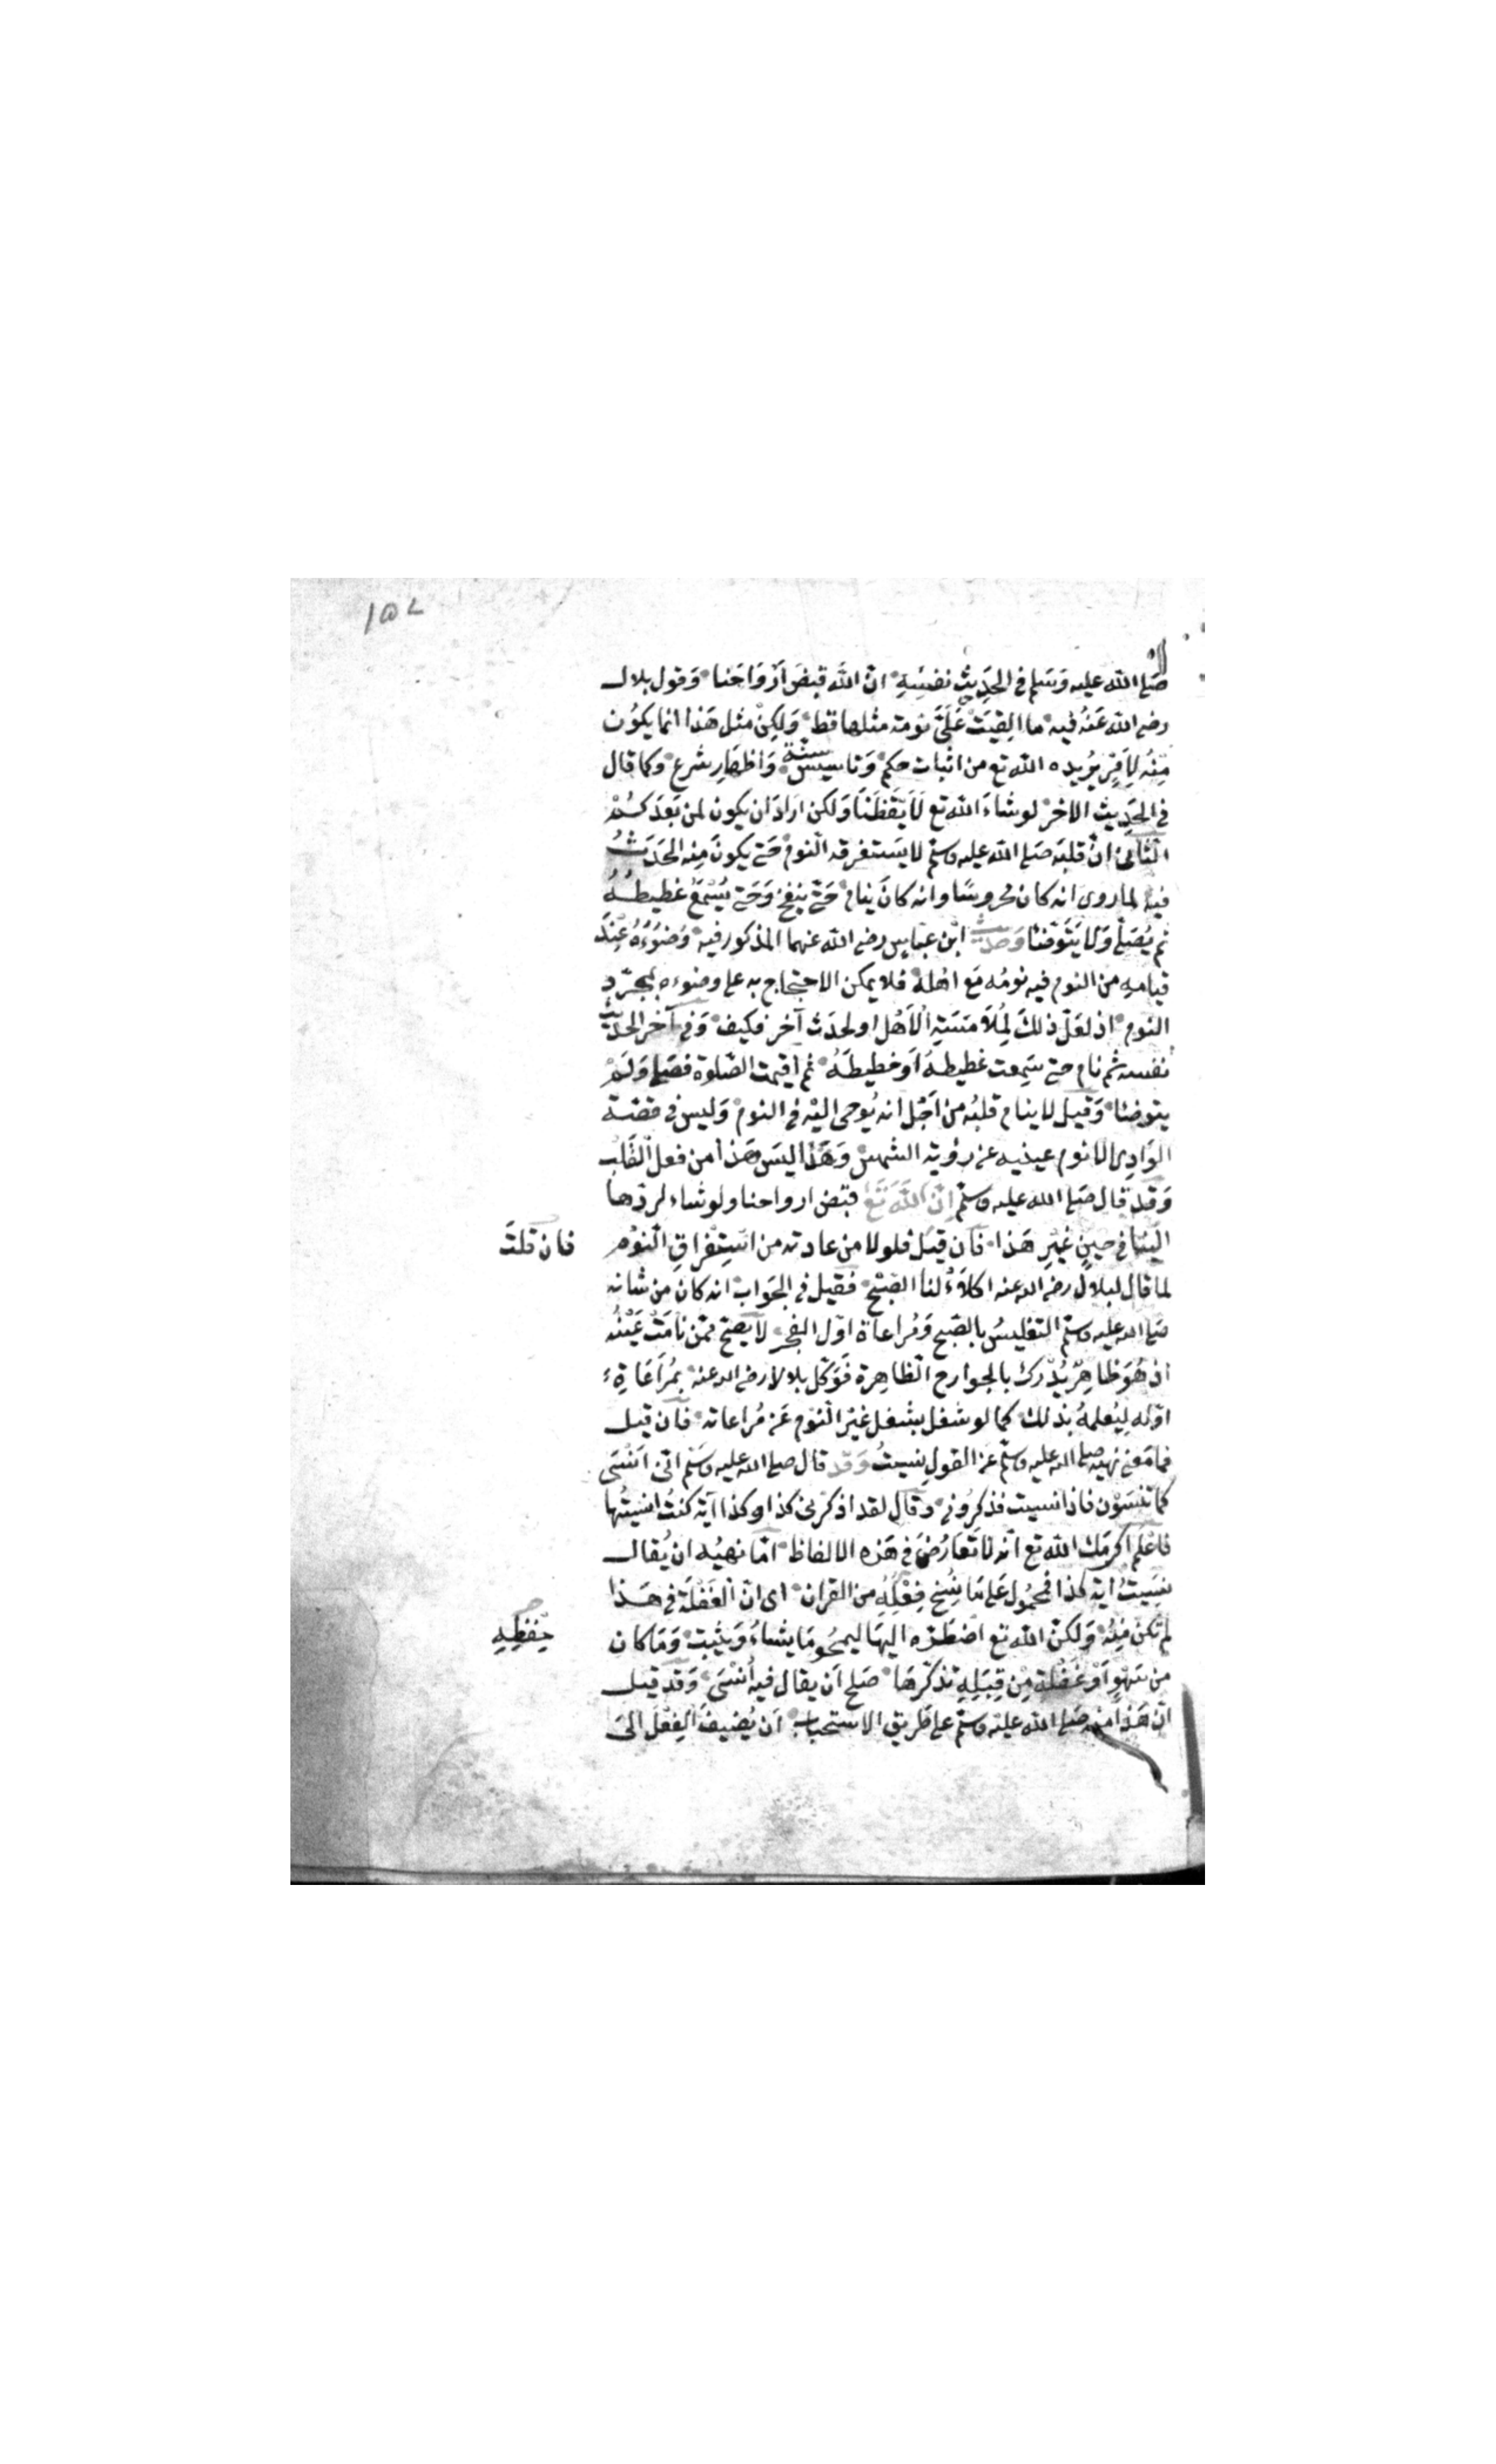 ١٥٢
صلى الله عليه وَسَلم في الحَدِيثِ نفسِهِ انّ اللّه قبضَ اَرْوَاحَنا وَقول بلال
رضى الله عَنهُ فيه ما القِيَتْ عَلَىَّ نومة مثلها قط وَلكِنْ مثل هَذا انما يكوُن
مِنْهُ لِأَمْرٍ يُرِيده الله تع من اثبات حكم وَتاسيس سنّة وَاظهَارِ شرع وكما قال
في الحَدِيث الاخر لو شَاءَ الله تع لَاَيقَظَنَا وَلكن ارادَ ان يكون لمن بَعدَكُمْ
الثاني انّ قلبَه صَلى الله عليه وسلّم لا يَستغرقه النوم حَتى يكونَ مِنه الحَدَثُ
فيهِ لما روى انه كان محروسًا وانه كانَ ينام حَتّى ينفخ وَحَتى يُسْمَعَ غطيطُهُ
ثم يُصَلى وَلا يَتَوضا وَحديث ابن عبّاس رضى الله عنهما المذكور فيه وُضوُءَهُ عِنْدَ
قيامِهِ من النوم فيه نومُه مَع اهْله فلا يمكن الاحتجاج به على وضوءه بمجَرّدِ
النوم اذ لعَلّ ذلكَ لِمُلَامَسَةِ الْاَهْل او لحدَث آخر فكيف وَفي آخر الحديث
نفسه ثم نام حتى سَمِعت غطيطهُ اَو خطيطَهُ ثم اقيمت الصّلوة فصَلى وَلمْ
يتوضا وَقيل لا ينام قلبُه من اَجْل انه يُوحى اليْه في النوم وَليس في قصّة
الوَادِى الا نوم عينيه عن رؤية الشمس وَهَذا ليسَ هَذا من فعل القَلب
وَقد قال صَلى الله عليه وسلّم اِنّ اللّه تَع قبَض ارواحنا ولو شاء لردّها
الَيْنا في حينٍ غَيْرِ هَذا فآن قيْل فلولا من عادته من اسْتِغْراقِ النوْم فان قلتَ
لما قال لبلال رضى الله عنه اكلَاءْ لنا الصّبْح فقيل في الجَوَاب انه كان من شانه
صَلى الله عليه وسلّم التغليسُ بالصّبح وَمُراعاة اوّل الفجر لا يَصحّ ممّن نامَتْ عَيْنُه
اذ هُوَ ظاهِرٌ يُدْرك بالجوارح الظاهِرة فوَكّل بلالا رضى الله عنه بِمُرَاعَاةِ
اوّله لِيُعلِمهُ بذلك كما لو شغل بشغل غَيْر النّوم عَن مُراعاته فآن قيل
فما مَعنى نهيه صلى الله عليه وسلّم عن القول نسيتُ وَقد قال صلى الله عليه وسَلّم انّى اَنْسَى
كما تنسَوْن فاذا نسيت فذكرُونى وقال لقد اذكرنى كذا وكذا آية كنتُ اُنسِيتُها
فاعْلم اكرمَك الله تع انّه لا تَعَارُضَ في هَذه الالفاظ امّا نهيُه ان يُقال
نسَيتُ اية كذا فمحمُول عَلى مَا نُسخ فِعْلهُ من القران اى انّ الْغَفْلة في هَذا حِفْظِهِ
لم تكن مِنْهُ وَلكنّ الله تع اضطَرّه اليهَا ليمحُو مَا يشاءُ وَيثبت وَمَا كان
من سَهْوٍ اَوْ غَفْلةٍ مِنْ قِبَلِهِ تذكّرهَا صَلح اَن يقال فيهِ اُنْسَى وَقد قيل
انّ هَذا منه صَلى الله عليْه وسلّم على طَريق الاستحباب اَن يُضيفَ الفِعْلَ الىَ